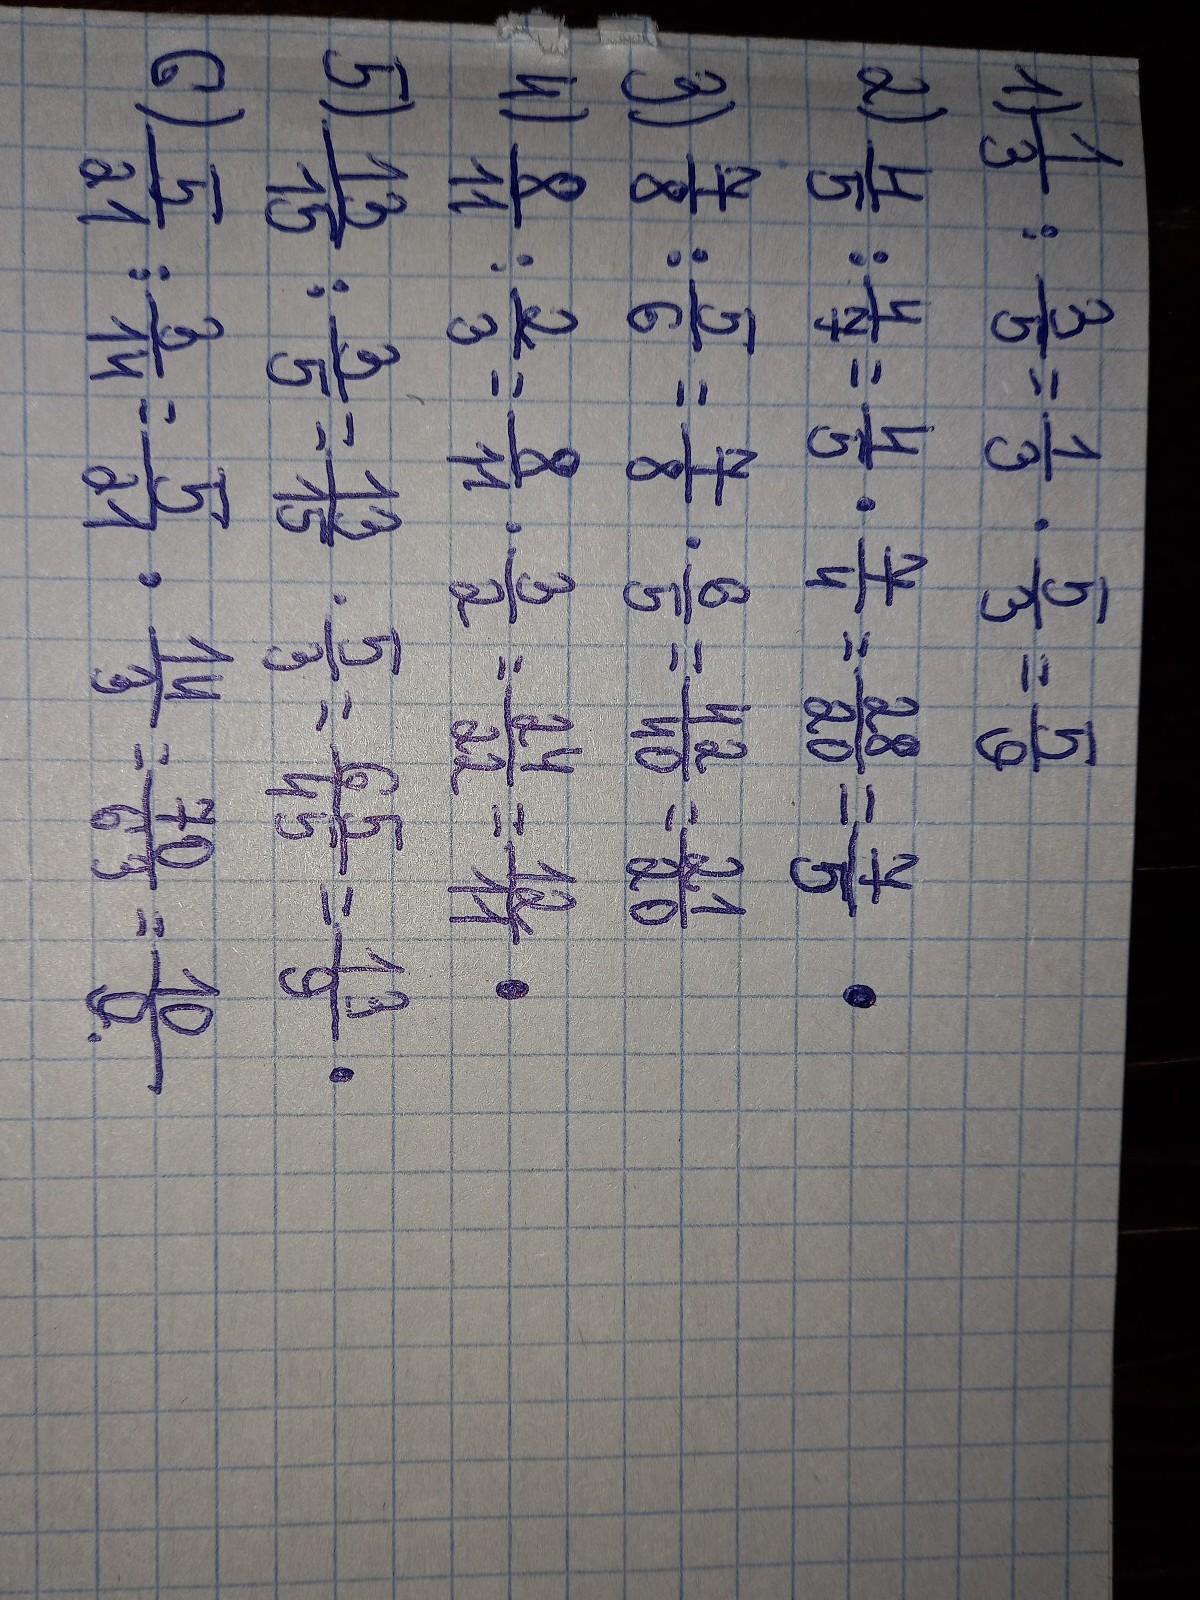 1) 1/3 : 3/5 = 1/3 · 5/3 = 5/9
2) 4/5 : 4/7 = 4/5 · 7/4 = 28/20 = 7/5.
3) 7/8 : 5/6 = 7/8 · 6/5 = 42/40 = 21/20
4) 8/11 : 2/3 = 8/11 · 3/2 = 24/22 = 12/11.
5) 13/15 : 3/5 = 13/15 · 5/3 = 65/45 = 13/9.
6) 5/21 : 3/14 = 5/21 · 14/3 = 70/63 = 10/9.